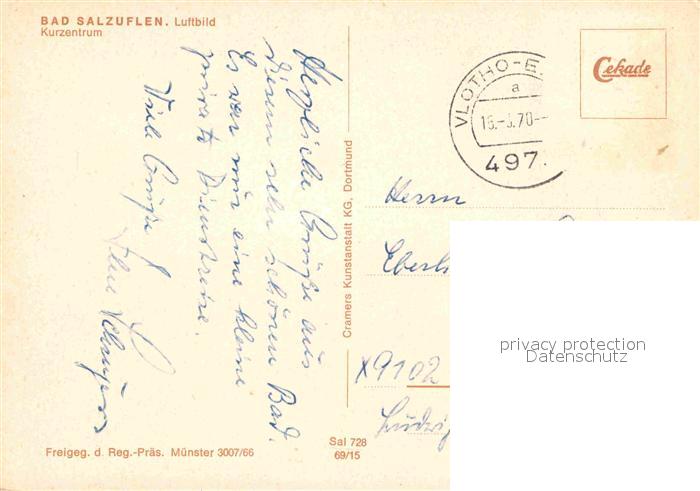 BAD SALZUFLEN. Luftbild
Kurzentrum
Herzliche Grüße aus
diesem sehr schönen Bad.
Es war nur eine kleine
private Dienstreise.
Viele Grüße
Cramers Kunstanstalt KG, Dortmund
Freigeg. d. Reg.-Präs. Münster 3007/66
Sal 728
69/15
Cekade
VLOTHO-E
a
497
Herrn
Eberh
x9102
Ludwig
privacy protection
Datenschutz